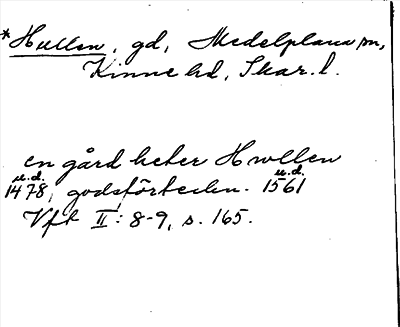 *Hullen, gd, Medelplana sn,
Kinne hd, Skar. l.
en gård heter Hwllen
u.d. u.d.
1478, godsförteckn. 1561
Vft II: 8-9, s. 165.